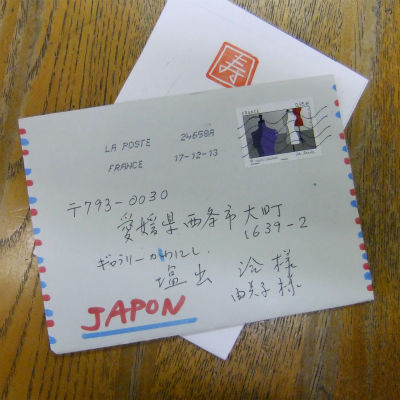 寿
FRANCE
LA POSTE 24658A
FRANCE 17-12-13
〒793-0030
愛媛県西条市大町
1639-2
ギャラリーかわにし
塩出 冶様
由美子様
JAPON